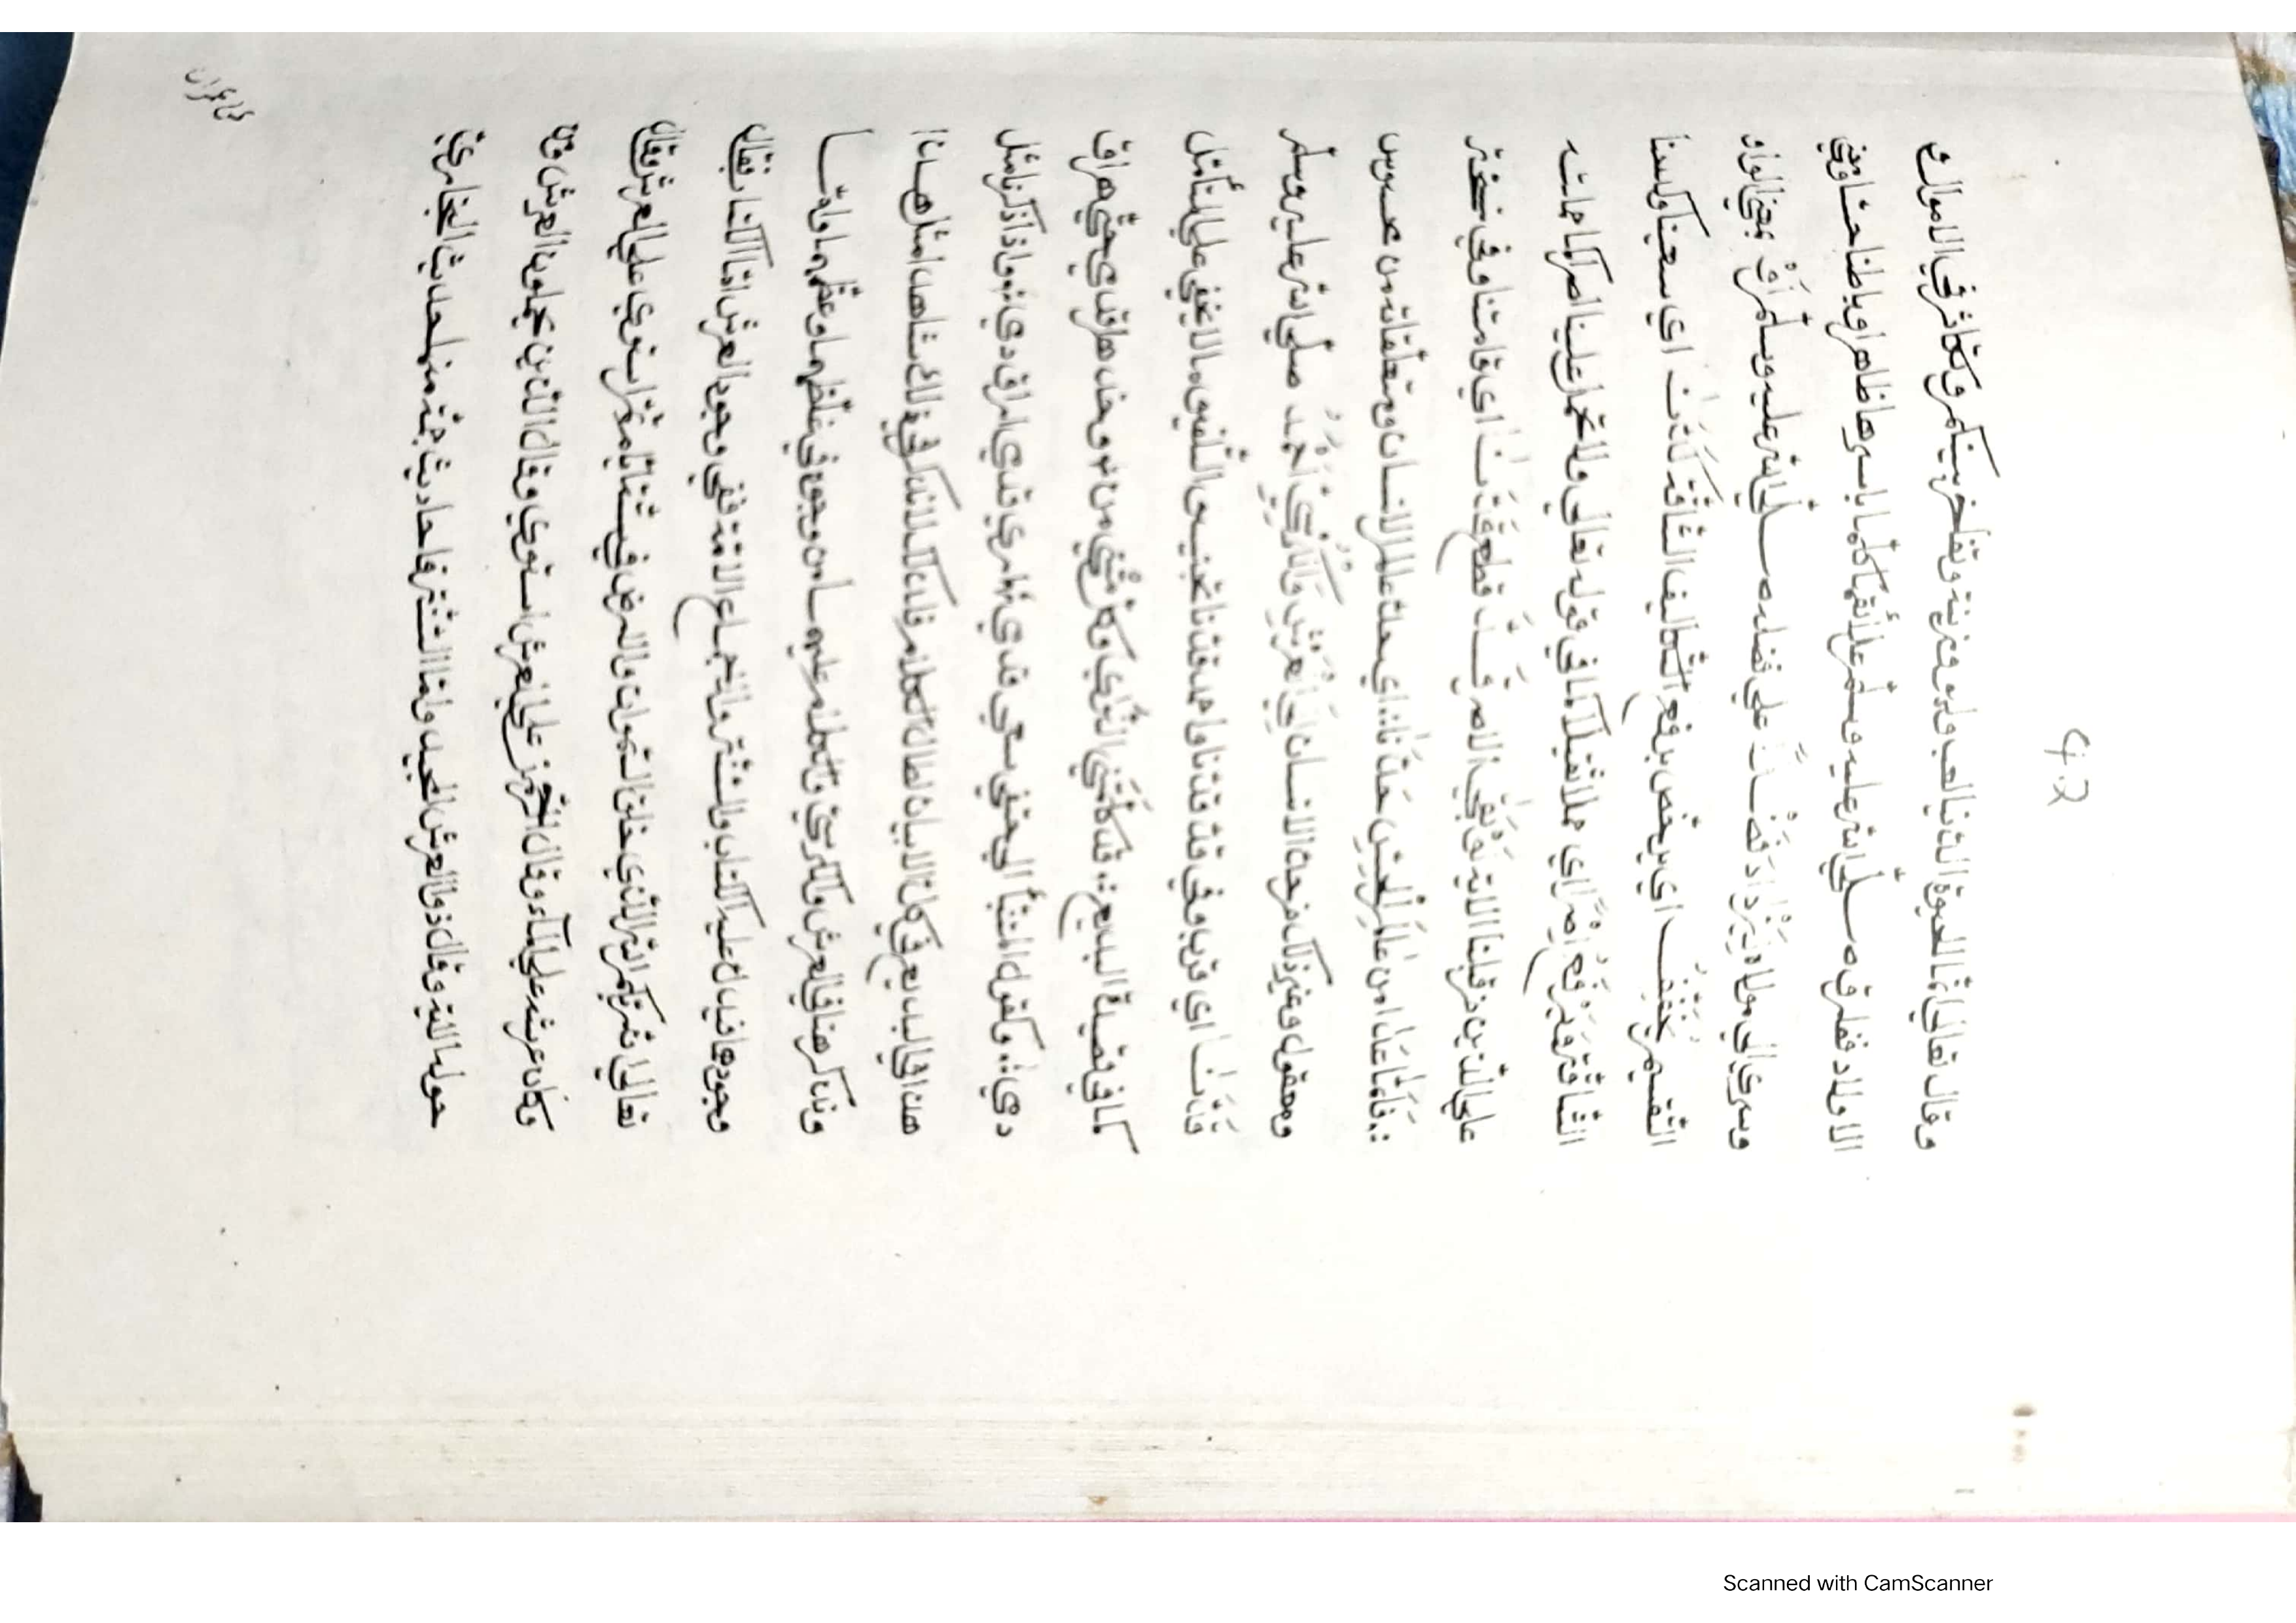 42
وقال تعالى انما الحيوة الدنيا لعب ولهو وزينة وتفاخر بينكم وتكاثر في الاموال و
الاولاد ففارق صلى الله عليه وسلم علائقها كلها باسرها ظاهرا وباطنا حسّا ومعنى
وسرى الى مولاه ليزداد فضلا على فضله صلى الله عليه وسلم أو بمعنى الواو
التقسيم يخفف اي يرخص برفع التكاليف الشاقة كاذن اي سمعنا وكسنا
الشاقة ويرفع اصرا اي حملا ثقيلا كما في قوله تعالى ولا تحمل علينا اصرا كما حملته
على الذين من قبلنا الاية او يقي الاصر فسد قطع قدنا اي قامتنا وفي نسخة
فاما عدا من علم المحسن حدثانا اي حدث علم الانسان ومتعلقاته من محسوس
ومعقول وغير ذلك من حدث الانسان الى العرش والكرسي احمد صلى الله عليه وسلم
قدنا اي قرب وفي قدنا واحد قدنا تجنيس التلفيق ما لا يخفى على المتأمل
كما في قصيدة البديع قد كلمتني الذي وكم تثني من وخدها قدي حتى هراق
دمي وكقول المتنبي الى حتفي سعى قدمي ارى قدمي اراق دمي واذ ذكرنا مثل
هذا في البديع في كل الابيات لطال الكلام فلا تذكر في ذلك شاهدا مثل هذا
ونذكر هنا في العرش والكرسي والكلام عليهما من وجوه في خلقهما وعظمهما واما
وجودهما فيدل عليه الكتاب والسنة والاجماع الامة ففي وجود العرش اما الكتاب فقال
تعالى ان ربكم الله الذي خلق السموات والارض في ستة ايام ثم استوى على العرش وقال
وكان عرشه على الماء وقال الرحمن على العرش استوى وقال الذين يحملون العرش ومن
حوله الاية وقال ذو العرش المجيد واما السنة فاحاديث جمة منها حديث البخاري